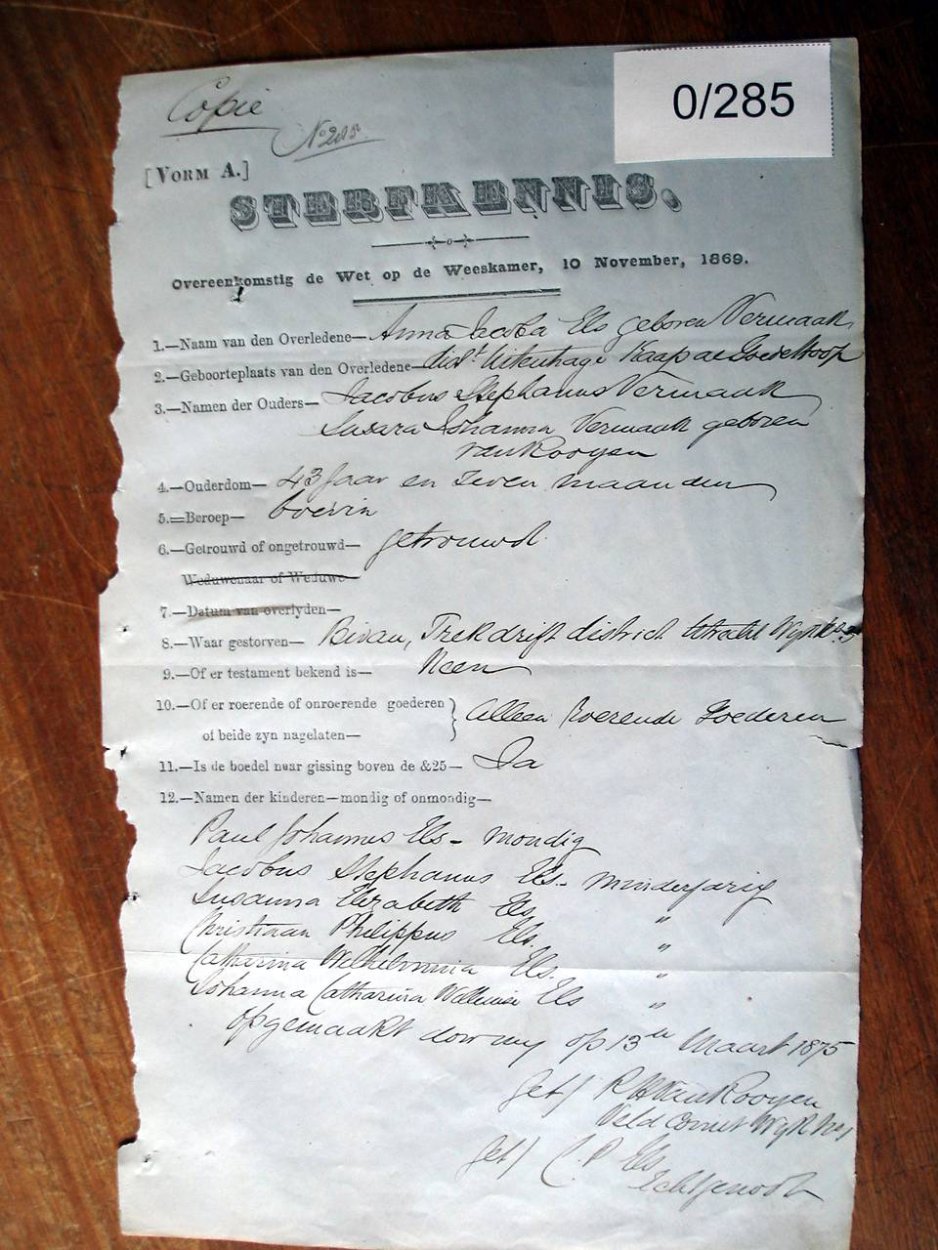 0/285
Copie
No 285
[VORM A.]
STERFKENNIS.
Overeenkomstig de Wet op de Weeskamer, 10 November, 1869.
1.—Naam van den Overledene— Anna Jacoba Els geboren Vermaak
2.—Geboorteplaats van den Overledene— dist Uitenhage Kaap de Goede Hoop
3.—Namen der Ouders— Jacobus Stephanus Vermaak
Johanna Vermaak geboren
van Rooyen
4.—Ouderdom— 43 Jaar en Zeven maanden
5.—Beroep— boerin
6.—Getrouwd of ongetrouwd— getrouwd
Weduwenaar of Weduwe—
7.—Datum van overlyden—
8.—Waar gestorven— Trekdrift district Utrecht Wyk
9.—Of er testament bekend is— Neen
10.—Of er roerende of onroerende goederen } Alleen Roerende Goederen
of beide zyn nagelaten—
11.—Is de boedel naar gissing boven de &25— Ja
12.—Namen der kinderen—mondig of onmondig—
Paul Johannes Els - mondig
Jacobus Stephanus Els - minderjarig
Susanna Elizabeth Els "
Christiaan Philippus Els "
Catharina Els "
Johanna Catharina Els "
opgemaakt door my op 13de Maart 1875
Get/ van Rooyen
Veld Cornet Wyk No 1
Get/ C. P. Els
Echtgenoot